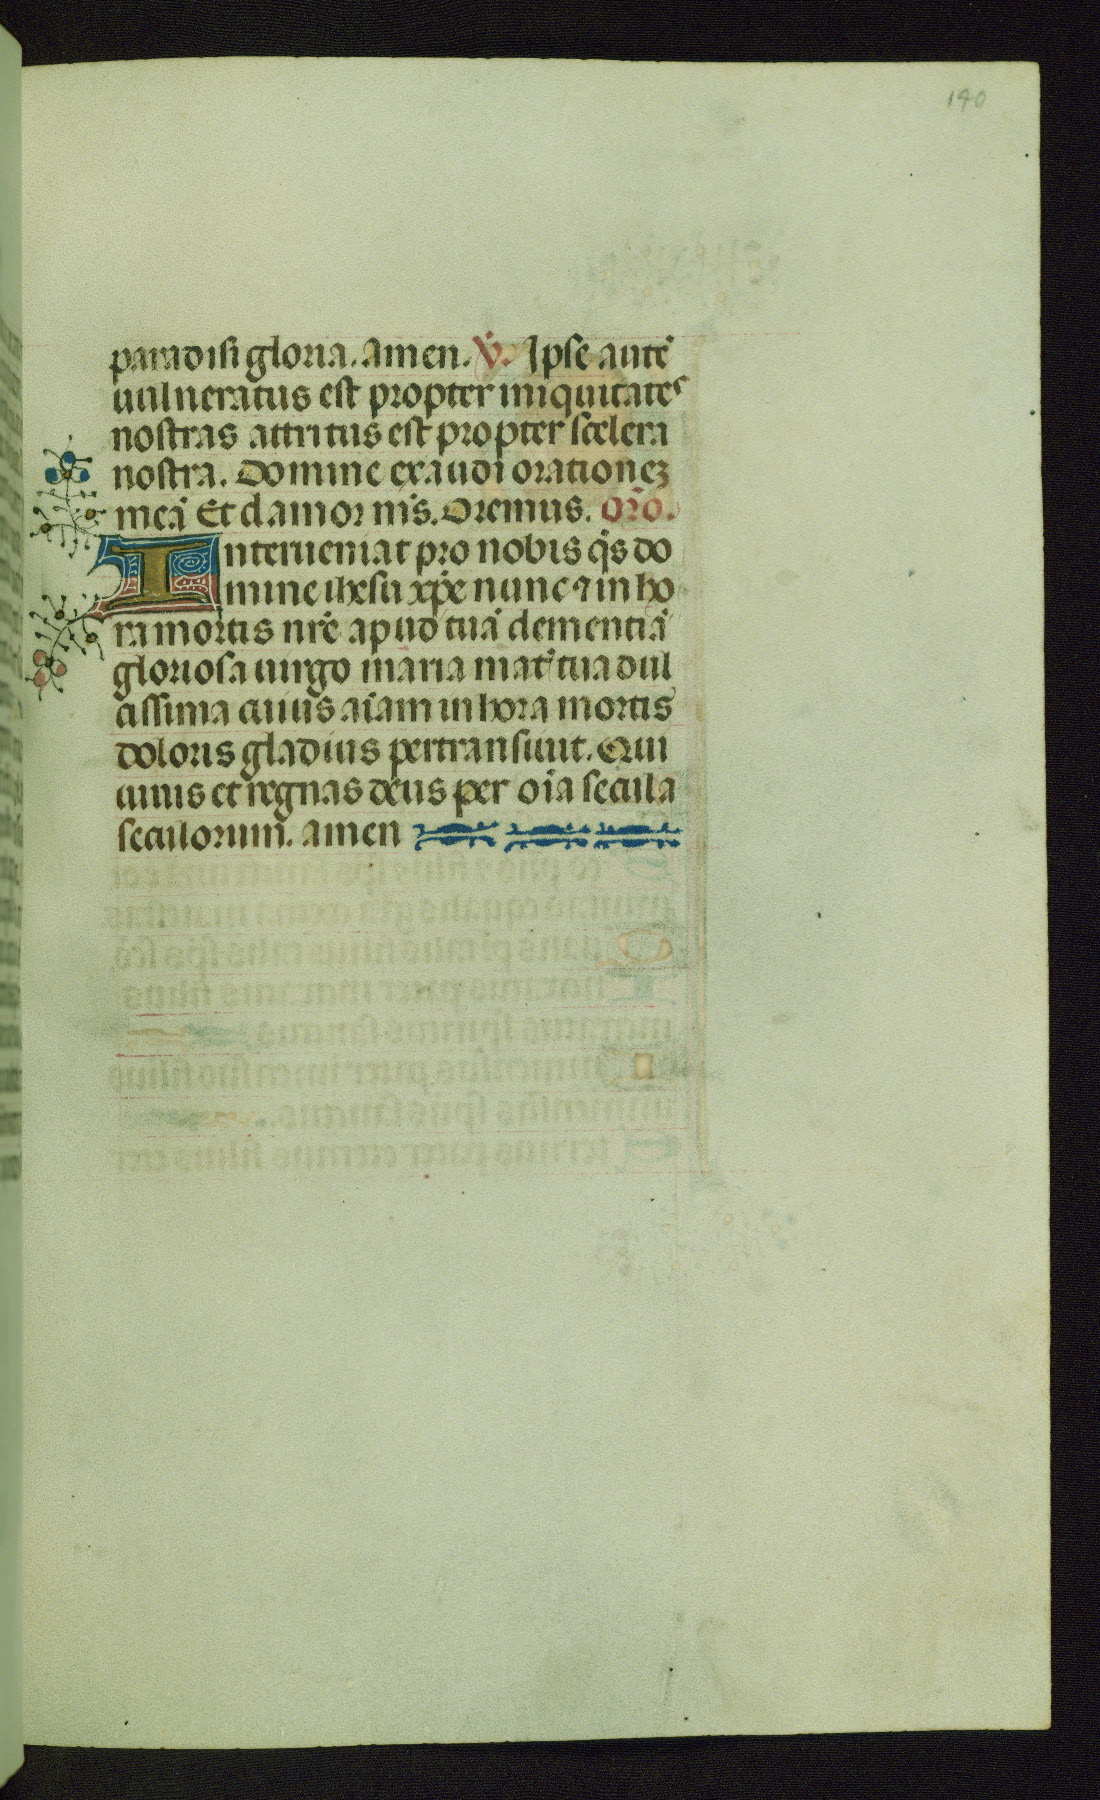 190
paradisi gloria. Amen. V̇. Ipse autē
vulneratus est propter iniquitates
nostras attritus est propter scelera
nostra. Domine exaudi orationeꝫ
meā Et clamor m̄s. Oremus. Oro̅.
Interueniat pro nobis q̄s do
mine ihesu xp̄e nunc ⁊ in ho
ra mortis nr̄e apud tuā clementiā
gloriosa uirgo maria mat͛ tua dul
cissima cuius aīam in hora mortis
doloris gladius pertransiuit. Qui
uiuis et regnas deus per oīa secula
seculorum. Amen